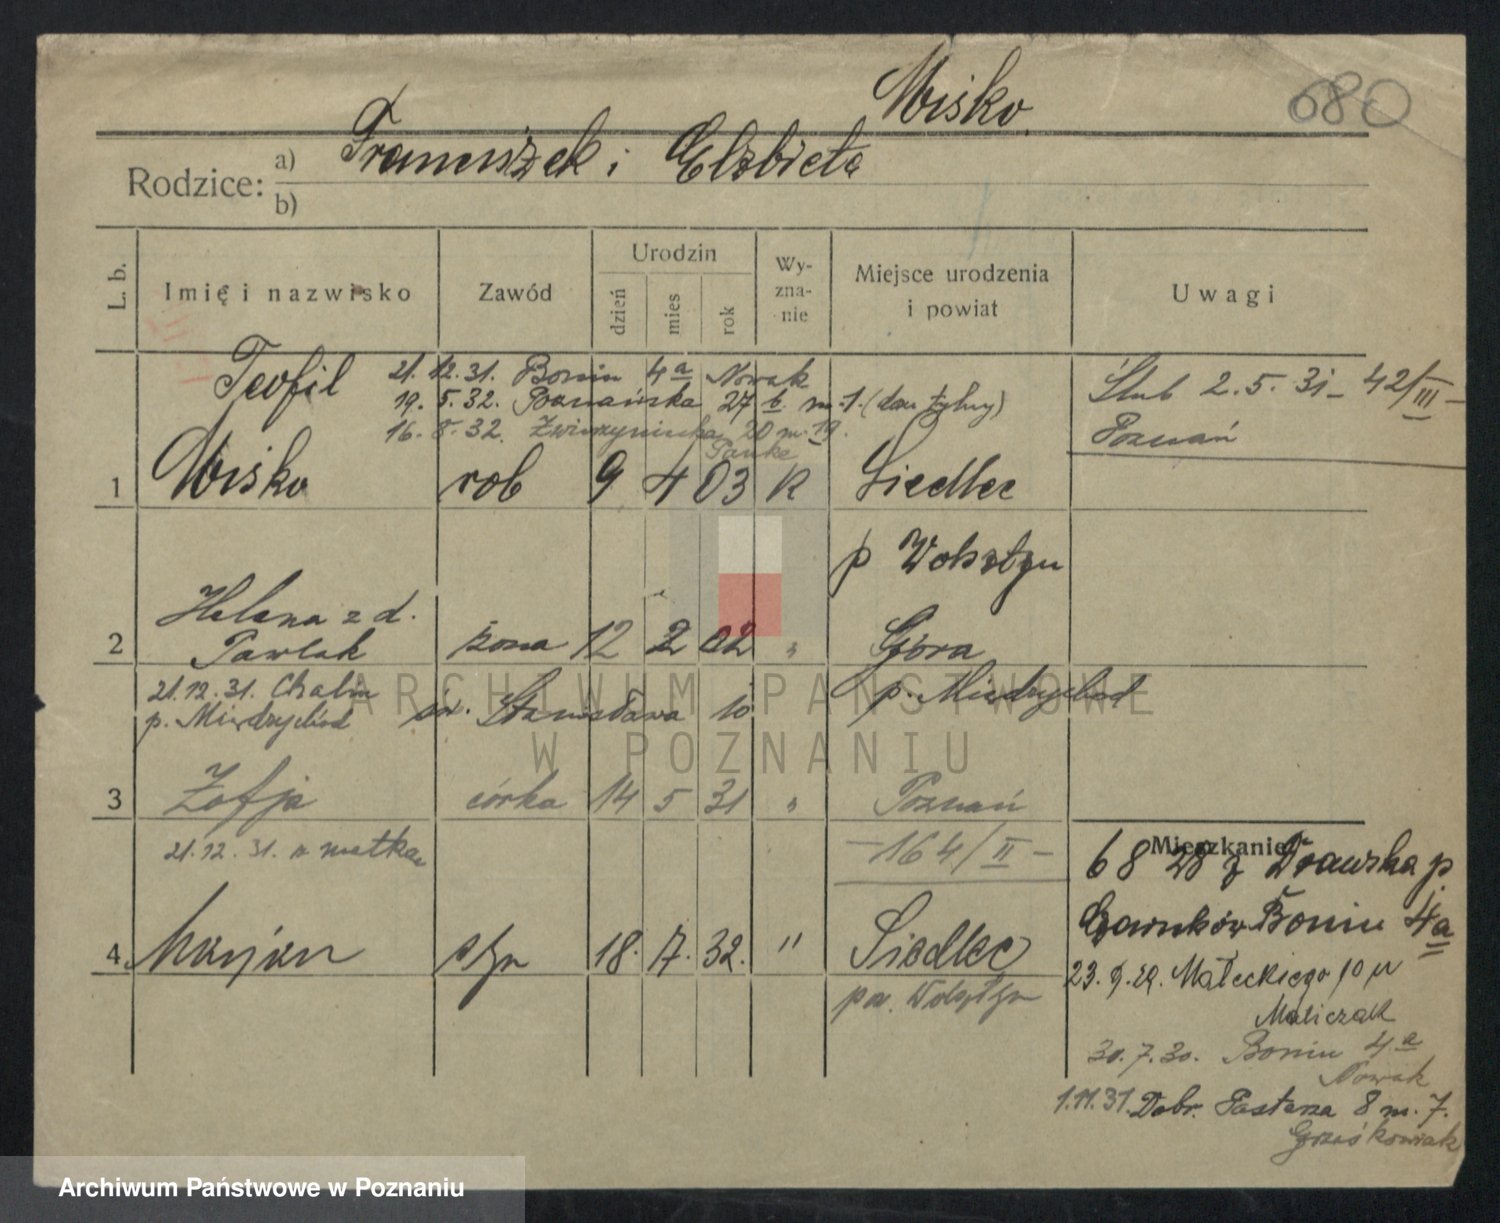 Misko
680
Rodzice: a) Franciszek i Elżbieta
b)
L. b.
Imię i nazwisko
Zawód
Urodzin
dzień
mies
rok
Wy-
zna-
nie
Miejsce urodzenia
i powiat
Uwagi
Teofil
21.12.31. Bonin 4a Nowak
19.5.32. Poznańska 27 b. m. 1. (dom tylny)
16.8.32. Zwierzyniecka 20 m. 19.
Ślub 2.5.31 – 42/III –
Poznań
1 Misko rob 9 4 03 R Siedlec
p Wolsztyn
Helena z d.
2 Pawlak żona 12 2 02 " Góra
p. Międzychód
21.12.31. Chalin
p. Międzychód
św. Stanisława 10
3 Zofja córka 14 5 31 " Poznań
21.12.31. z matką
– 164/II –
4. Maryan syn 18. 7. 32. " Siedlec
pow. Wolsztyn
Mieszkanie
6 8 28 z Drawska p.
Czarnków Bonin 4a
23.9.29. Małeckiego 10
Maliczak
30.7.30. Bonin 4a
Nowak
1.11.31. Dąbr. 8 m. 7.
Grześkowiak
ARCHIWUM PAŃSTWOWE
W POZNANIU
Archiwum Państwowe w Poznaniu